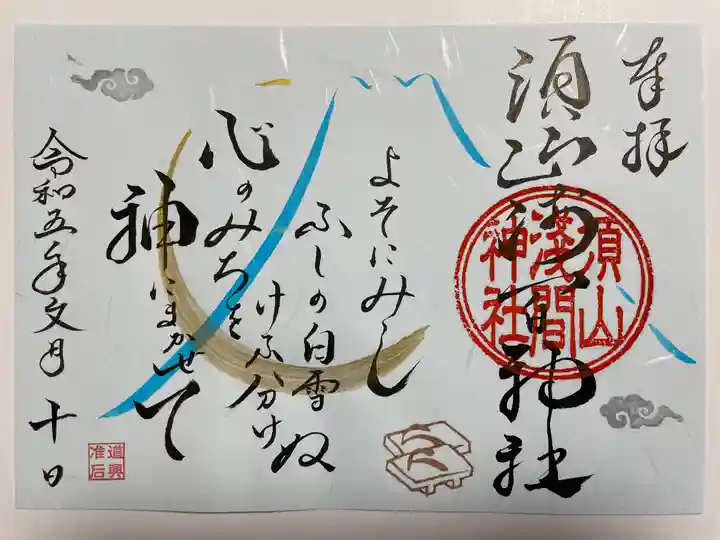 奉拝
須山浅間神社
須山
淺間
神社
よそにみし
ふしの白雪
けふハ分けぬ
心のみちを
神にまかせて
令和五年文月十日
道興
准后